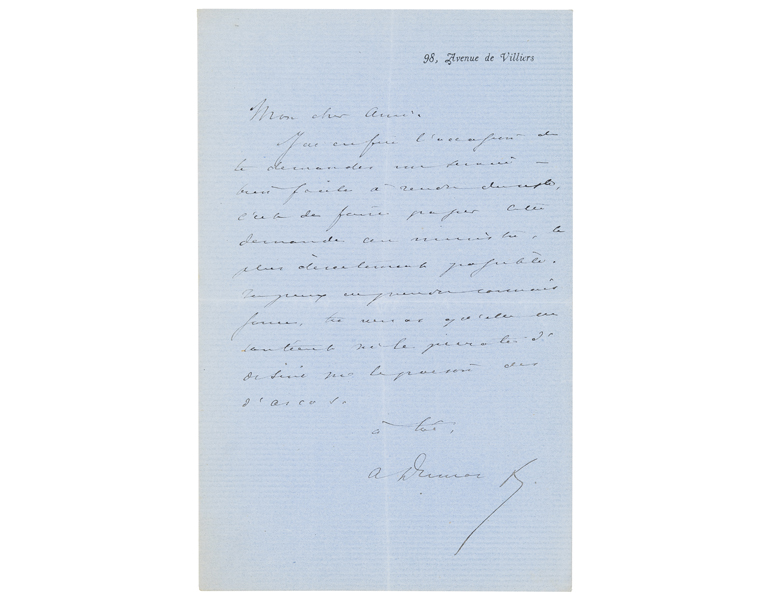 98, Avenue de Villiers
Mon cher Ami.
J'ai enfin l'occasion de
te demander un service
bien facile à rendre
c'est de faire passer cette
demande au ministre, le
plus directement possible.
Tu peux en prendre connais
sance, tu verras qu'elle ne
contient ni le
ni le poison des
à toi,
A Dumas f.